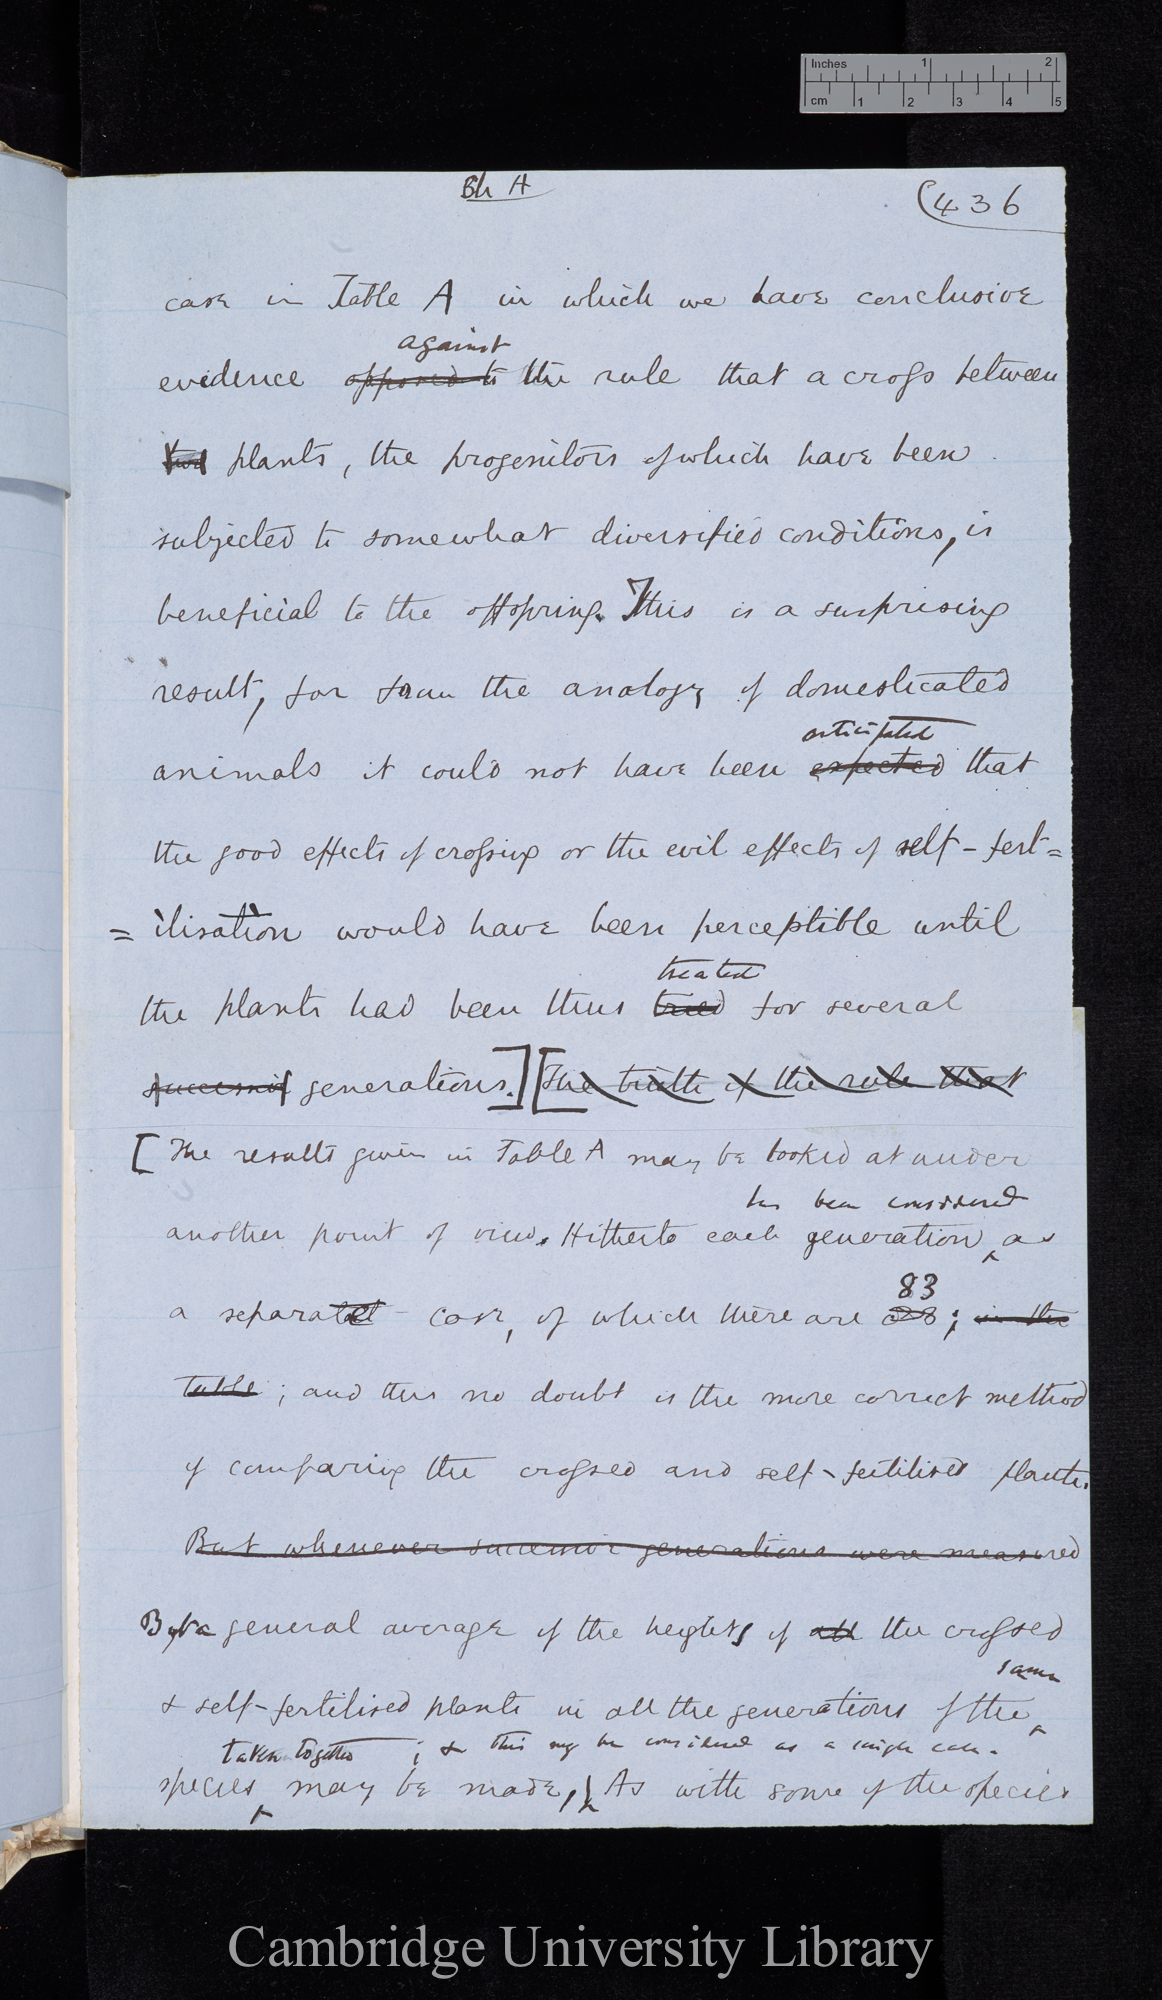 Inches 1 2
cm 1 2 3 4 5
Ch A
(436
case in Table A in which we have conclusive
against
evidence opposed to the rule that a cross between
two plants, the progenitors of which have been
subjected to somewhat diversified conditions, is
beneficial to the offspring. This is a surprising
result, for from the analogy of domesticated
anticipated
animals it could not have been expected that
the good effects of crossing or the evil effects of self-fert=
=ilisation would have been perceptible until
treated
the plants had been thus tried for several
successive generations.] [The truth of the rule that
[The results given in Table A may be looked at under
has been considered
another point of view. Hitherto each generation as
83
a separate case, of which there are ; in the
Table ; and this no doubt is the more correct method
of comparing the crossed and self-fertilised plants.
But whenever successive generations were measured
But a general average of the heights of all the crossed
same
& self-fertilised plants in all the generations of the
taken together ; & this may be considered as a single case.
species may be made, As with some of the species
Cambridge University Library